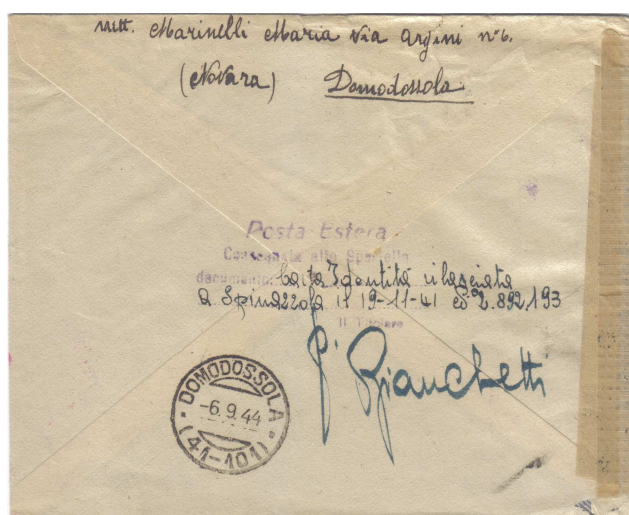 mitt. Marinelli Maria via Argini n° 6.
(Novara) Domodossola
Posta Estera
Consegnata allo Sportello
documento:
Carta Identità rilasciata
a Spinazzola il 19-11-41 2.892.193
Il Titolare
Bianchetti
DOMODOSSOLA
-6.9.44
(41-101)